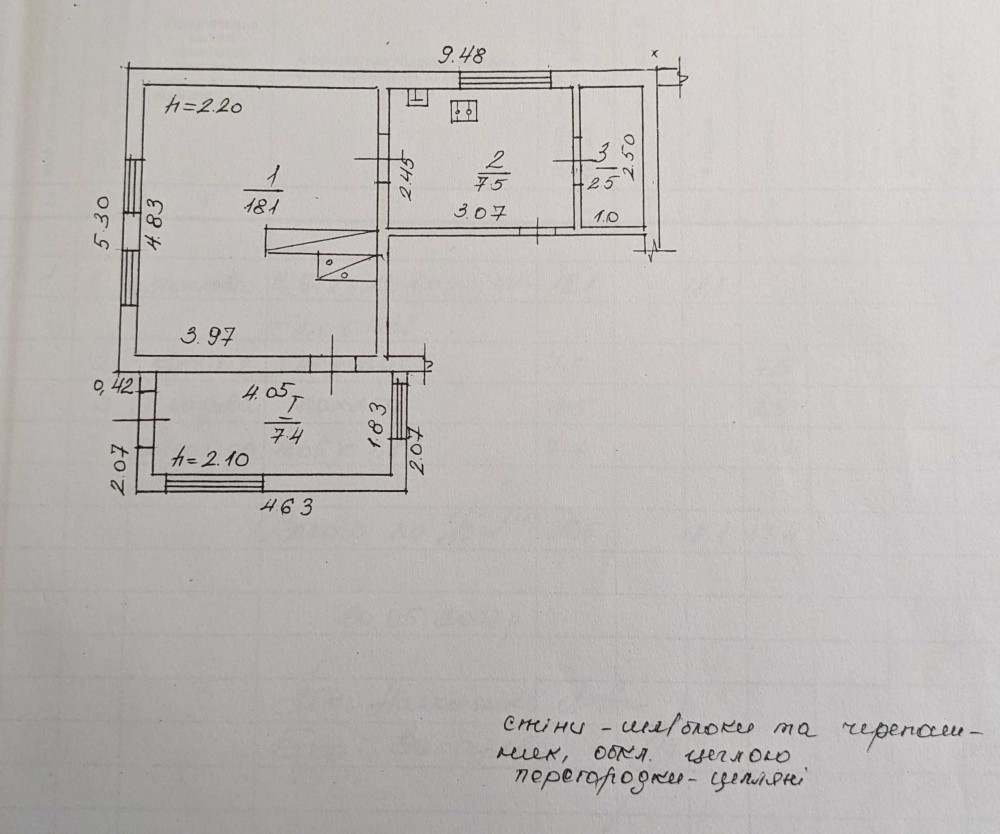 9.48
x
h=2.20
1
18.1
2
7.5
3
2.5
2.45
2.50
3.07
1.0
5.30
4.83
3.97
0,42
4.05
I
7.4
1.83
2.07
2.07
h=2.10
4.63
стіни - шл/блоки та черепаш-
ник, обкл. цеглою
перегородки - цегляні